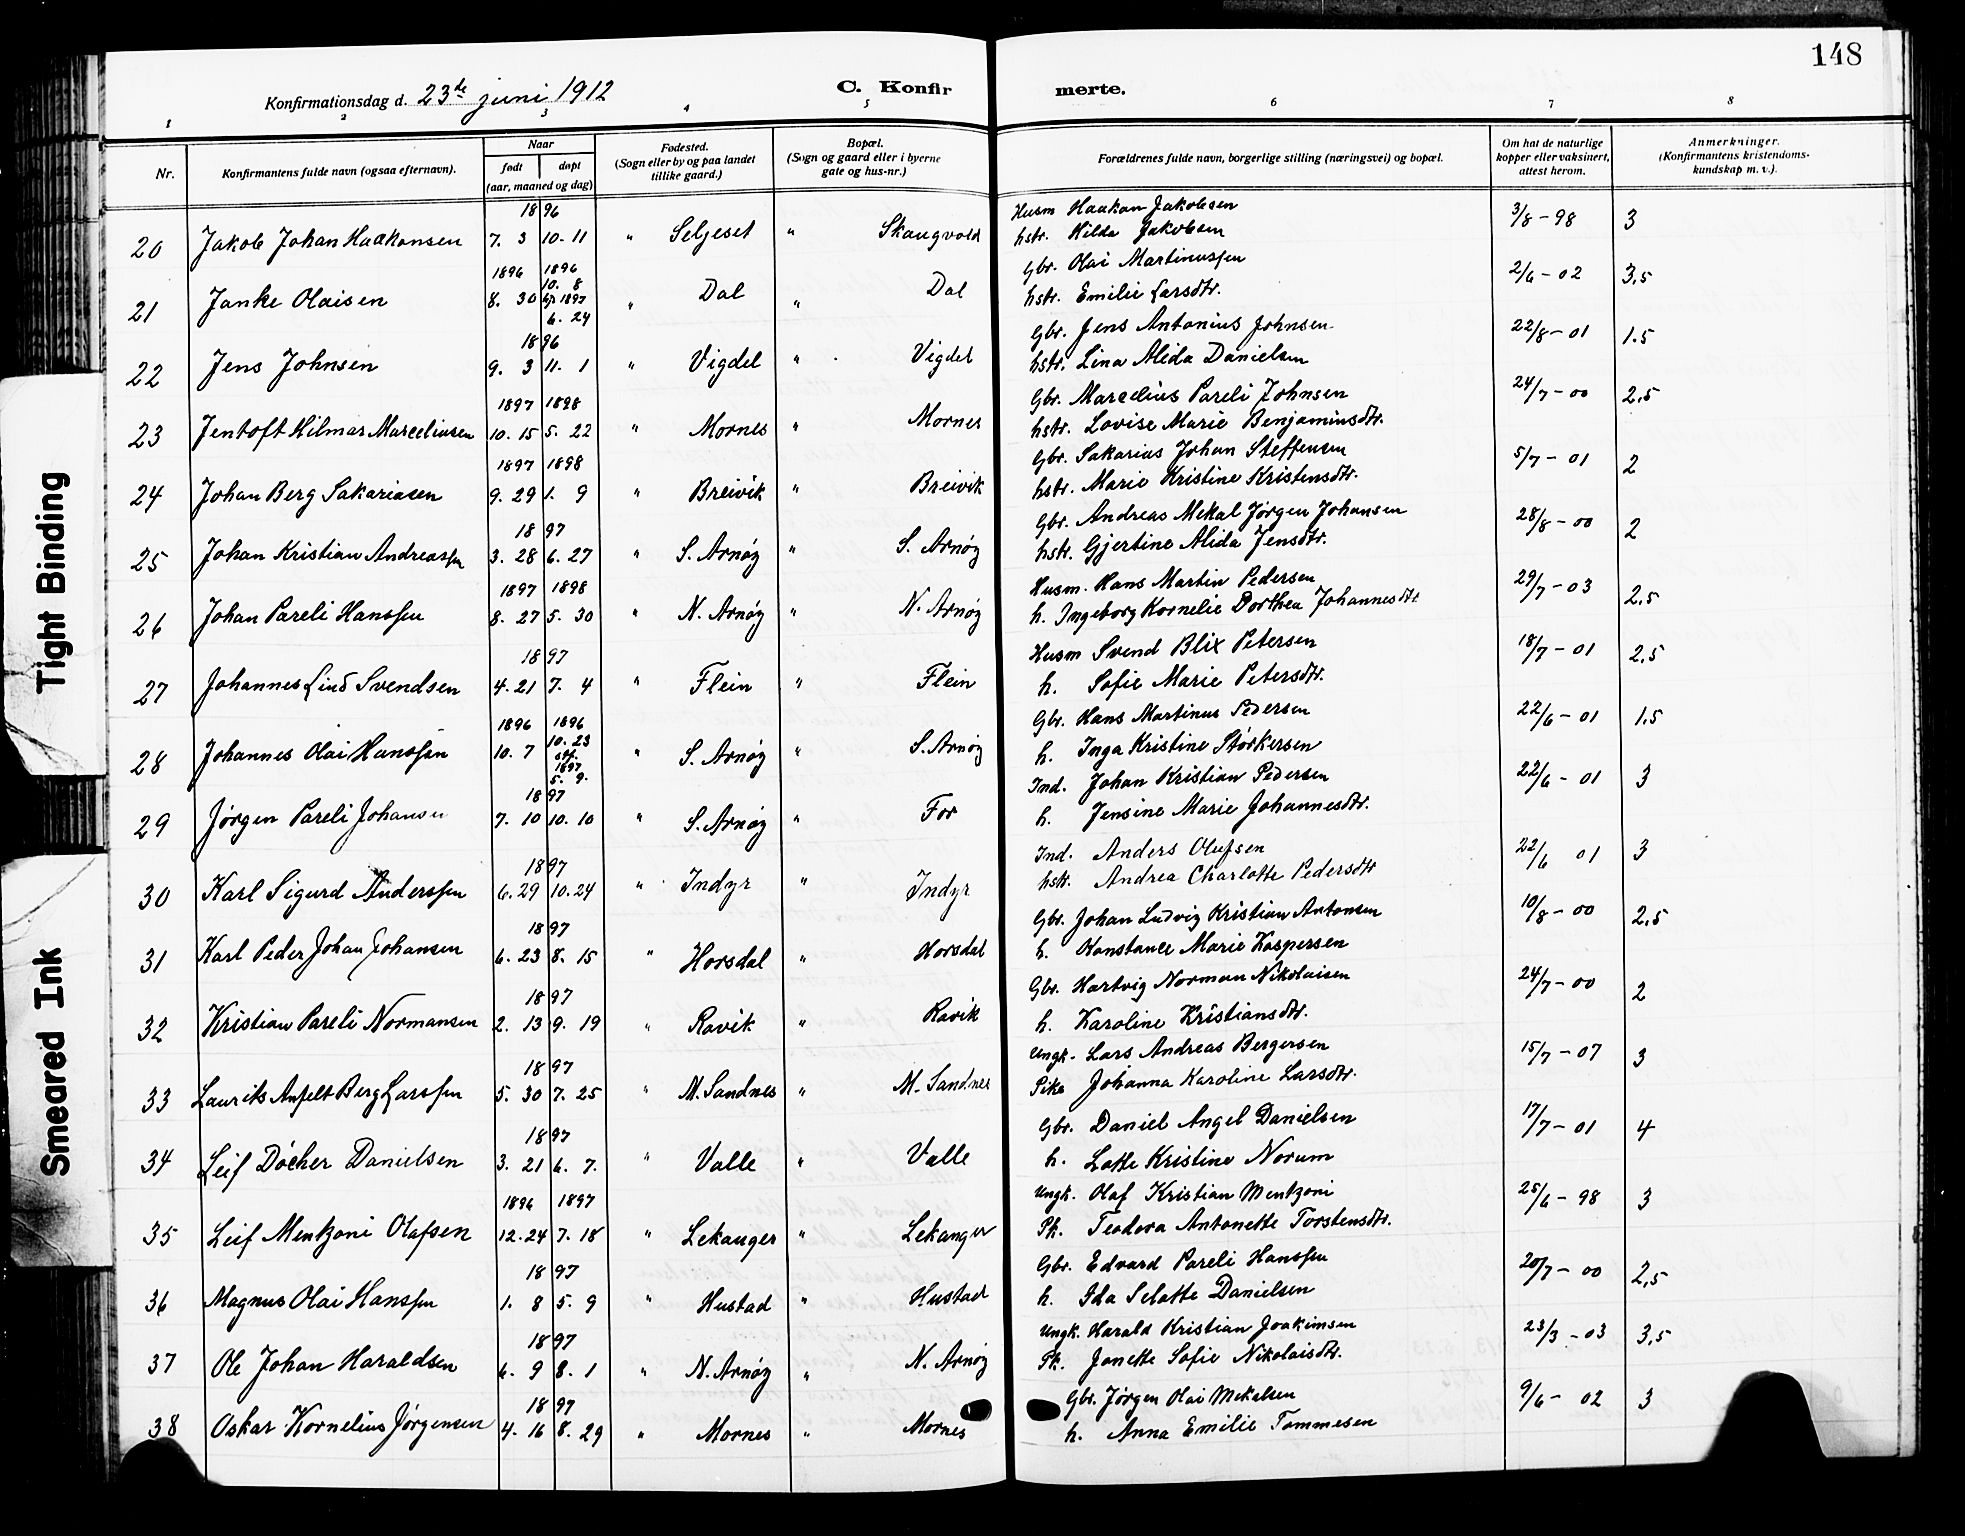 148
Konfirmationsdag d. 23de juni 1912 C. Konfirmerte.
1 2 3 4 5 6 7 8
Nr. Konfirmantens fulde navn (ogsaa efternavn). Naar født døpt (aar, maaned og dag) Fødested. (Sogn eller by og paa landet tillike gaard.) Bopæl. (Sogn og gaard eller i byerne gate og hus-nr.) Forældrenes fulde navn, borgerlige stilling (næringsvei) og bopæl. Om hat de naturlige kopper eller vaksinert, attest herom. Anmerkninger. (Konfirmantens kristendomskundskap m. v.).
1896 Husm Haakon Jakobsen 3/8-98 3
20 Jakob Johan Haakonsen 7. 3 10. 11 " Seljeset " Skaugvold hstr. Hilda Jakobsen
1896 1896 Gbr. Olai Martinussen 2/6-02 3,5
21 Janke Olaisen 8. 30 10. 8 1897 6. 24 " Dal " Dal hstr. Emilie Larsdtr.
1896 Gbr. Jens Antonius Johnsen 22/8-01 1.5
22 Jens Johnsen 9. 3 11. 1 " Vigdel " Vigdel hstr. Lina Alida Danielsen
1897 1898 Gbr. Marcelius Pareli Johnsen 24/7-00 2,5
23 Jentoft Hilmar Marceliusen 10. 15 5. 22 " Mornes " Mornes hstr. Lovise Marie Benjaminsdtr.
1897 1898 Gbr. Sakarias Johan Steffensen 5/7-01 2
24 Johan Berg Sakariasen 9. 29 1. 9 " Breivik " Breivik hstr. Marie Kristine Kristensdtr.
1897 Gbr. Andreas Mekal Jørgen Johansen 28/8-00 2
25 Johan Kristian Andreassen 3. 28 6. 27 " S. Arnøy " S. Arnøy hstr. Gjertine Alida Jensdtr.
1897 1898 Husm. Hans Martin Pedersen 29/7-03 2,5
26 Johan Pareli Hanssen 8. 27 5. 30 " N. Arnøy " N. Arnøy h. Ingeborg Kornelie Dorthea Johannesdtr
1897 Husm Svend Blix Petersen 18/7-01 2,5
27 Johannes Lind Svendsen 4. 21 7. 4 " Flein " Flein h. Sofie Marie Petersdtr.
1896 1896 Gbr. Hans Martinus Pedersen 22/6-01 1,5
28 Johannes Olai Hanssen 10. 7 10. 23 1897 5. 9. " S. Arnøy " S. Arnøy h. Inga Kristine Størkersen
1897 Ind. Johan Kristian Pedersen 22/6-01 3
29 Jørgen Pareli Johansen 7. 10 10. 10 " S. Arnøy " For h. Jensine Marie Johannesdtr.
1897 Ind. Anders Olufsen 22/6 01 3
30 Karl Sigurd Anderssen 6. 29 10. 24 " Indyr " Indyr hstr. Andrea Charlotte Pedersdtr
1897 Gbr. Johan Ludvig Kristian Antonsen 10/8-00 2,5
31 Karl Peder Johan Johansen 6. 23 8. 15 " Horsdal " Horsdal h. Konstance Marie Kaspersen
1897 Gbr. Hartvig Norman Nikolaisen 24/7-00 2
32 Kristian Pareli Normansen 2. 13 9. 19 " Ravik " Ravik h. Karoline Kristiansdtr.
1897 Ungk. Lars Andreas Bergersen 15/7-07 3
33 Laurits Anfelt Berg Larssen 5. 30 7. 25 " M. Sandnes " M. Sandnes Pike Johanna Karoline Larsdtr.
1897 Gbr. Daniel Angel Danielsen 17/7-01 4
34 Leif Döcher Danielsen 3. 21 6. 7. " Valle " Valle h. Lotte Kristine Norum
1896 1897 Ungk. Olaf Kristian Mentzoni 25/6-98 3
35 Leif Mentzoni Olafsen 12. 24 7. 18 " Lekanger " Lekanger Pk. Teodora Antonette Torstensdtr.
1897 Gbr. Edvard Pareli Hanssen 20/7-00 2,5
36 Magnus Olai Hanssen 1. 8 5. 9 " Hustad " Hustad h. Ida Selotte Danielsen
1897 Ungk. Harald Kristian Joakimsen 23/3-03 3,5
37 Ole Johan Haraldsen 6. 9 8. 1 " N. Arnøy " N. Arnøy Pk. Janette Sofie Nikolaisdtr.
1897 Gbr. Jørgen Olai Mekalsen 9/6-02 3
38 Oskar Kornelius Jørgensen 4. 16 8. 29 " Mornes " Mornes h. Anna Emilie Tommesen
Tight Binding
Smeared Ink